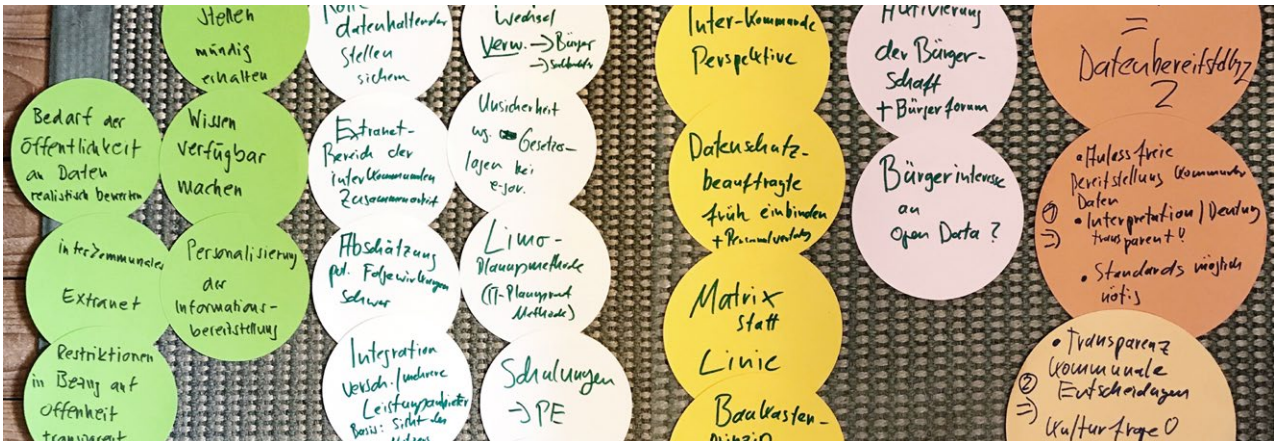 Bedarf der
Öffentlichkeit
an Daten
realistisch bewerten
interkommunales
Extranet
Restriktionen
in Bezug auf
Offenheit
transparent
Stellen
mündig
erhalten
Wissen
verfügbar
machen
Personalisierung
der
Informations-
bereitstellung
Rolle
datenhaltender
Stellen
sichern
Extranet-
Bereich der
interkommunalen
Zusammenarbeit
Abschätzung
pol. Folgewirkungen
schwer
Integration
versch./mehrere
Leistungsanbieter
Basis: Sicht des
Wechsel
Verw. → Bürger
Unsicherheit
wg. Gesetzes-
lagen bei
e-gov.
Limo-
Planungsmethode
(IT-Planungs
Methode)
Schulungen
→ PE
Inter-kommunale
Perspektive
Datenschutz-
beauftragte
früh einbinden
+ Personalvertretg
Matrix
statt
Linie
Baukasten-
prinzip
Aktivierung
der Bürger-
schaft
+ Bürgerforum
Bürgerinteresse
an
open Data?
=
Datenbereitstellung
?
• Anlassfreie
Bereitstellung kommunaler
Daten
① • Interpretation / Deutung
⇒ transparent!
• Standards möglich
nötig
• Transparenz
kommunale
② Entscheidungen
⇒
Kulturfrage!